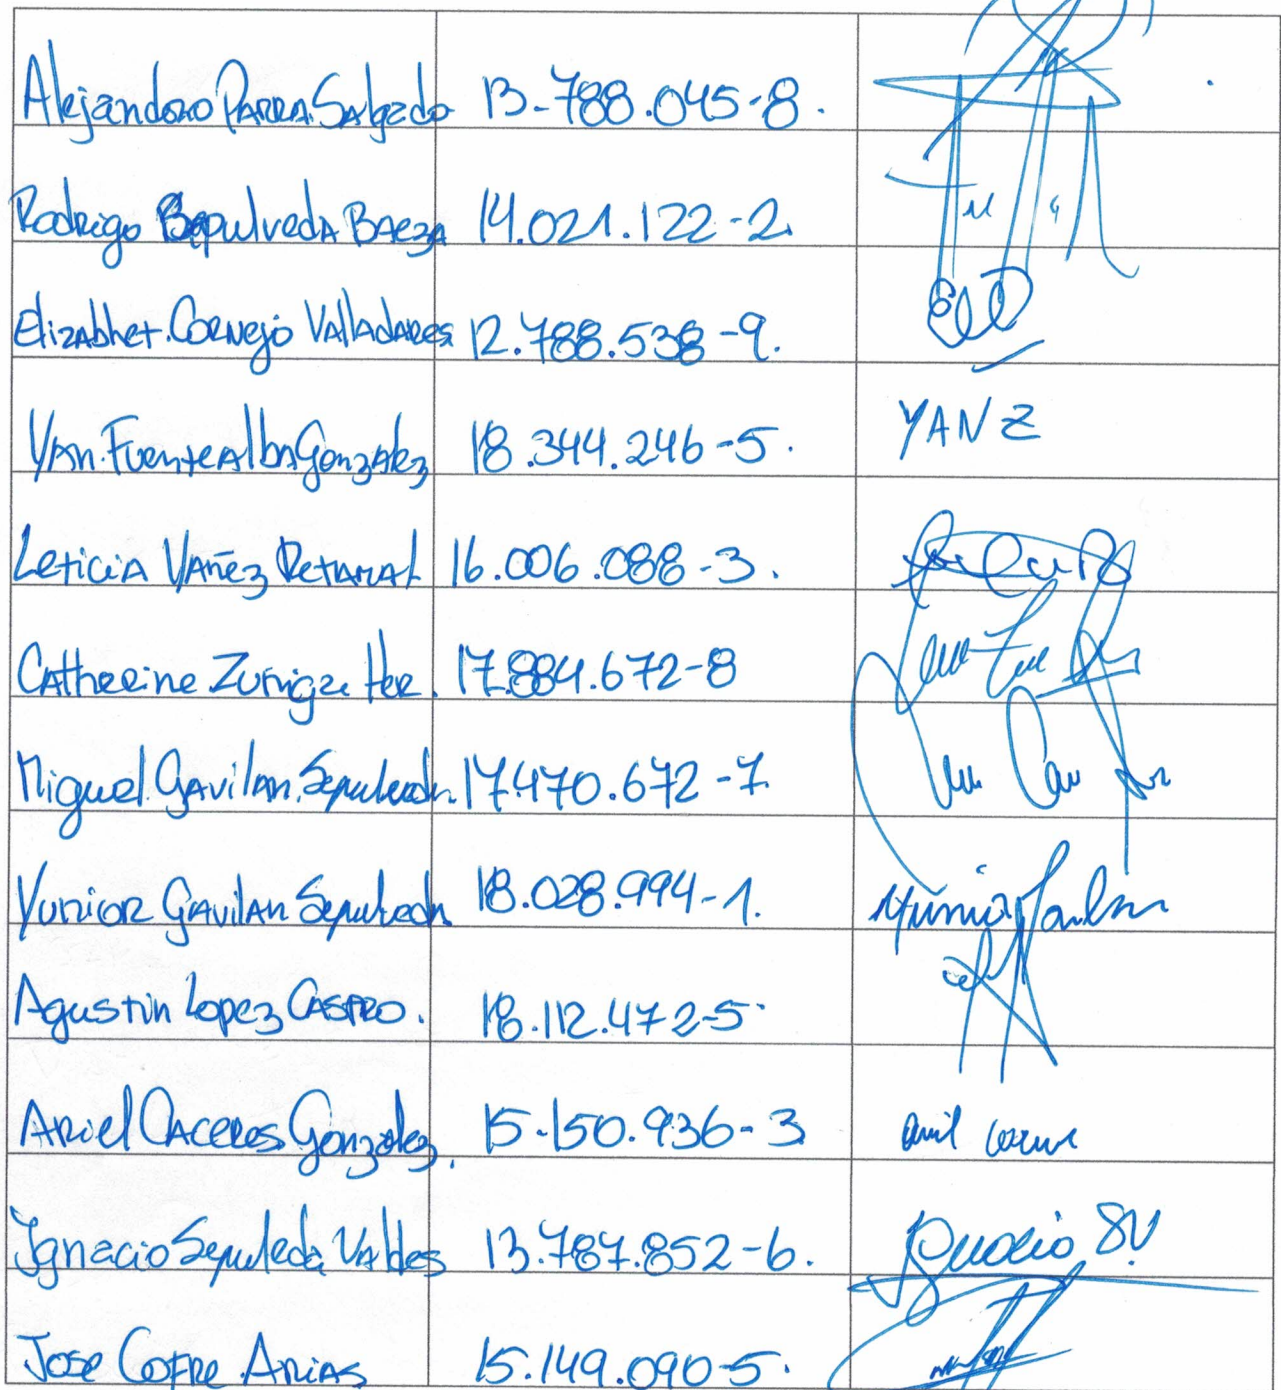 Alejandro Parra Salgado 13-788.045-8.
Rodrigo Sepulveda Baeza 14.021.122-2.
Elizabhet. Cornejo Valladares 12.788.538-9.
Yan. Fuentealba Gonzalez 18.344.246-5. YANZ
Leticia Yañez Retamal 16.006.088-3.
Catherine Zuñiga Her. 17.884.672-8
Miguel Gavilan Sepulveda. 17.470.672-7.
Yunior Gavilan Sepulveda 18.028.994-1. Yunior Gavilan
Agustin Lopez Castro. 18.112.472-5
Ariel Caceres Gonzalez. 15-150.936-3
Ignacio Sepuleda Valdes 13.787.852-6.
Jose Cofre Arias 15.149.090-5.